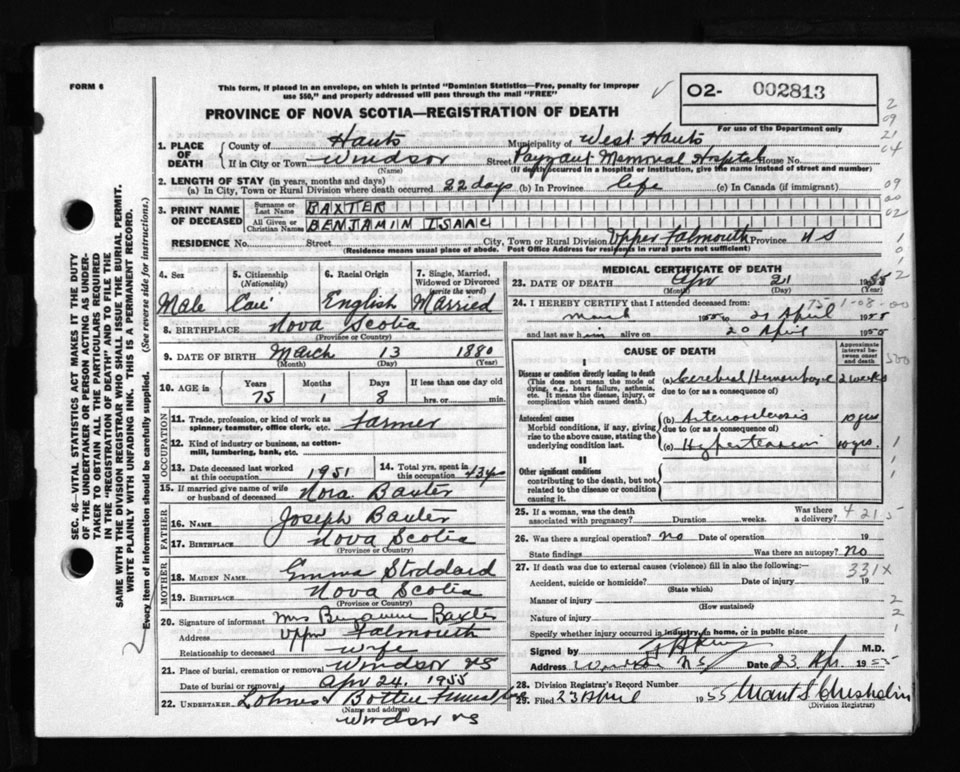 FORM 6
This form, if placed in an envelope, on which is printed "Dominion Statistics—Free, penalty for improper
use $50," and properly addressed will pass through the mail "FREE"
O2- 002813
For use of the Department only
PROVINCE OF NOVA SCOTIA—REGISTRATION OF DEATH
1. PLACE OF DEATH
County of Hants Municipality of West Hants
If in City or Town Windsor Street Payzant Memorial Hospital House No.
(Name) (If death occurred in a hospital or institution, give the name instead of street and number)
2. LENGTH OF STAY (in years, months and days)
(a) In City, Town or Rural Division where death occurred 22 days (b) In Province life (c) In Canada (if immigrant)
3. PRINT NAME OF DECEASED
Surname or Last Name BAXTER
All Given or Christian Names BENJAMIN ISAAC
RESIDENCE No. Street City, Town or Rural Division Upper Falmouth Province N S
(Residence means usual place of abode. Post Office Address for residents in rural parts not sufficient)
4. Sex Male
5. Citizenship (Nationality) Can
6. Racial Origin English
7. Single, Married, Widowed or Divorced (write the word) Married
8. BIRTHPLACE Nova Scotia
(Province or Country)
9. DATE OF BIRTH March 13 1880
(Month) (Day) (Year)
10. AGE in Years Months Days If less than one day old
75 1 8 hrs. or min.
OCCUPATION
11. Trade, profession, or kind of work as spinner, teamster, office clerk, etc. Farmer
12. Kind of industry or business, as cotton-mill, lumbering, bank, etc.
13. Date deceased last worked at this occupation 1951
14. Total yrs. spent in this occupation 43 yrs
15. If married give name of wife or husband of deceased Nora Baxter
FATHER
16. NAME Joseph Baxter
17. BIRTHPLACE Nova Scotia
(Province or Country)
MOTHER
18. MAIDEN NAME Emma Stoddard
19. BIRTHPLACE Nova Scotia
(Province or Country)
20. Signature of informant Mrs Benjamin Baxter
Address Upper Falmouth
Relationship to deceased wife
21. Place of burial, cremation or removal Windsor NS
Date of burial or removal Apr 24, 1955
22. UNDERTAKER
(Name and address)
Windsor NS
MEDICAL CERTIFICATE OF DEATH
23. DATE OF DEATH Apr 21 1955
(Month) (Day)
24. I HEREBY CERTIFY that I attended deceased from:
March 1955 to 21 April 1955
and last saw him alive on 20 April 1955
CAUSE OF DEATH
Approximate interval between onset and death
I
Disease or condition directly leading to death
(This does not mean the mode of dying, e.g., heart failure, asthenia, etc. It means the disease, injury, or complication which caused death.)
(a) Cerebral Hemorrhage 2 weeks
due to (or as a consequence of)
Antecedent causes
Morbid conditions, if any, giving rise to the above cause, stating the underlying condition last.
(b) Arteriosclerosis 10 yrs
due to (or as a consequence of)
(c) Hypertension 10 yrs.
II
Other significant conditions contributing to the death, but not related to the disease or condition causing it.
25. If a woman, was the death associated with pregnancy? Duration weeks. Was there a delivery?
26. Was there a surgical operation? No Date of operation 19
State findings Was there an autopsy? No
27. If death was due to external causes (violence) fill in also the following:—
331X
Accident, suicide or homicide? Date of injury 19
(State which)
Manner of injury
(How sustained)
Nature of injury
Specify whether injury occurred in industry, in home, or in public place
Signed by M.D.
Address Windsor NS Date 23 Apr. 1955
28. Division Registrar's Record Number
29. Filed 23 April 1955
(Division Registrar)
SEC. 46—VITAL STATISTICS ACT MAKES IT THE DUTY
OF THE UNDERTAKER OR PERSON ACTING AS UNDER-
TAKER TO OBTAIN ALL THE PARTICULARS REQUIRED
IN THE "REGISTRATION OF DEATH" AND TO FILE THE
SAME WITH THE DIVISION REGISTRAR WHO SHALL ISSUE THE BURIAL PERMIT.
WRITE PLAINLY WITH UNFADING INK. THIS IS A PERMANENT RECORD.
Every item of information should be carefully supplied. (See reverse side for instructions.)